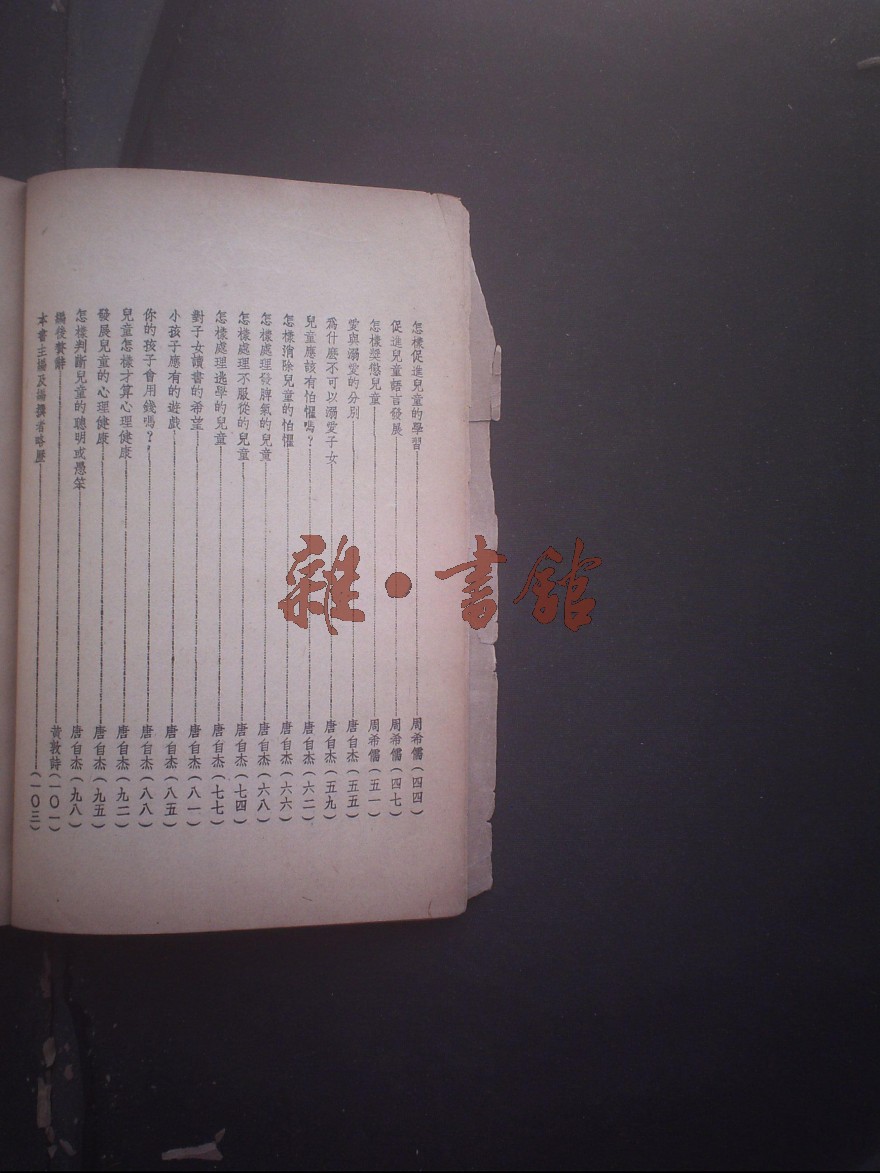 怎樣促進兒童的學習 周希儒(四四)
促進兒童語言發展 周希儒(四七)
怎樣奬懲兒童 周希儒(五一)
愛與溺愛的分別 唐自杰(五五)
爲什麽不可以溺愛子女 唐自杰(五九)
兒童應該有怕懼嗎？ 唐自杰(六二)
怎樣消除兒童的怕懼 唐自杰(六六)
怎樣處理發脾氣的兒童 唐自杰(六八)
怎樣處理不服從的兒童 唐自杰(七四)
怎樣處理逃學的兒童 唐自杰(七七)
對子女讀書的希望 唐自杰(八一)
小孩子應有的遊戲 唐自杰(八五)
你的孩子會用錢嗎？ 唐自杰(八八)
兒童怎樣才算心理健康 唐自杰(九二)
發展兒童的心理健康 唐自杰(九五)
怎樣判斷兒童的聰明或愚笨 唐自杰(九八)
編後贅辭 黄敦詩(一〇一)
本書主編及編撰者略歷 (一〇三)
雜•書館